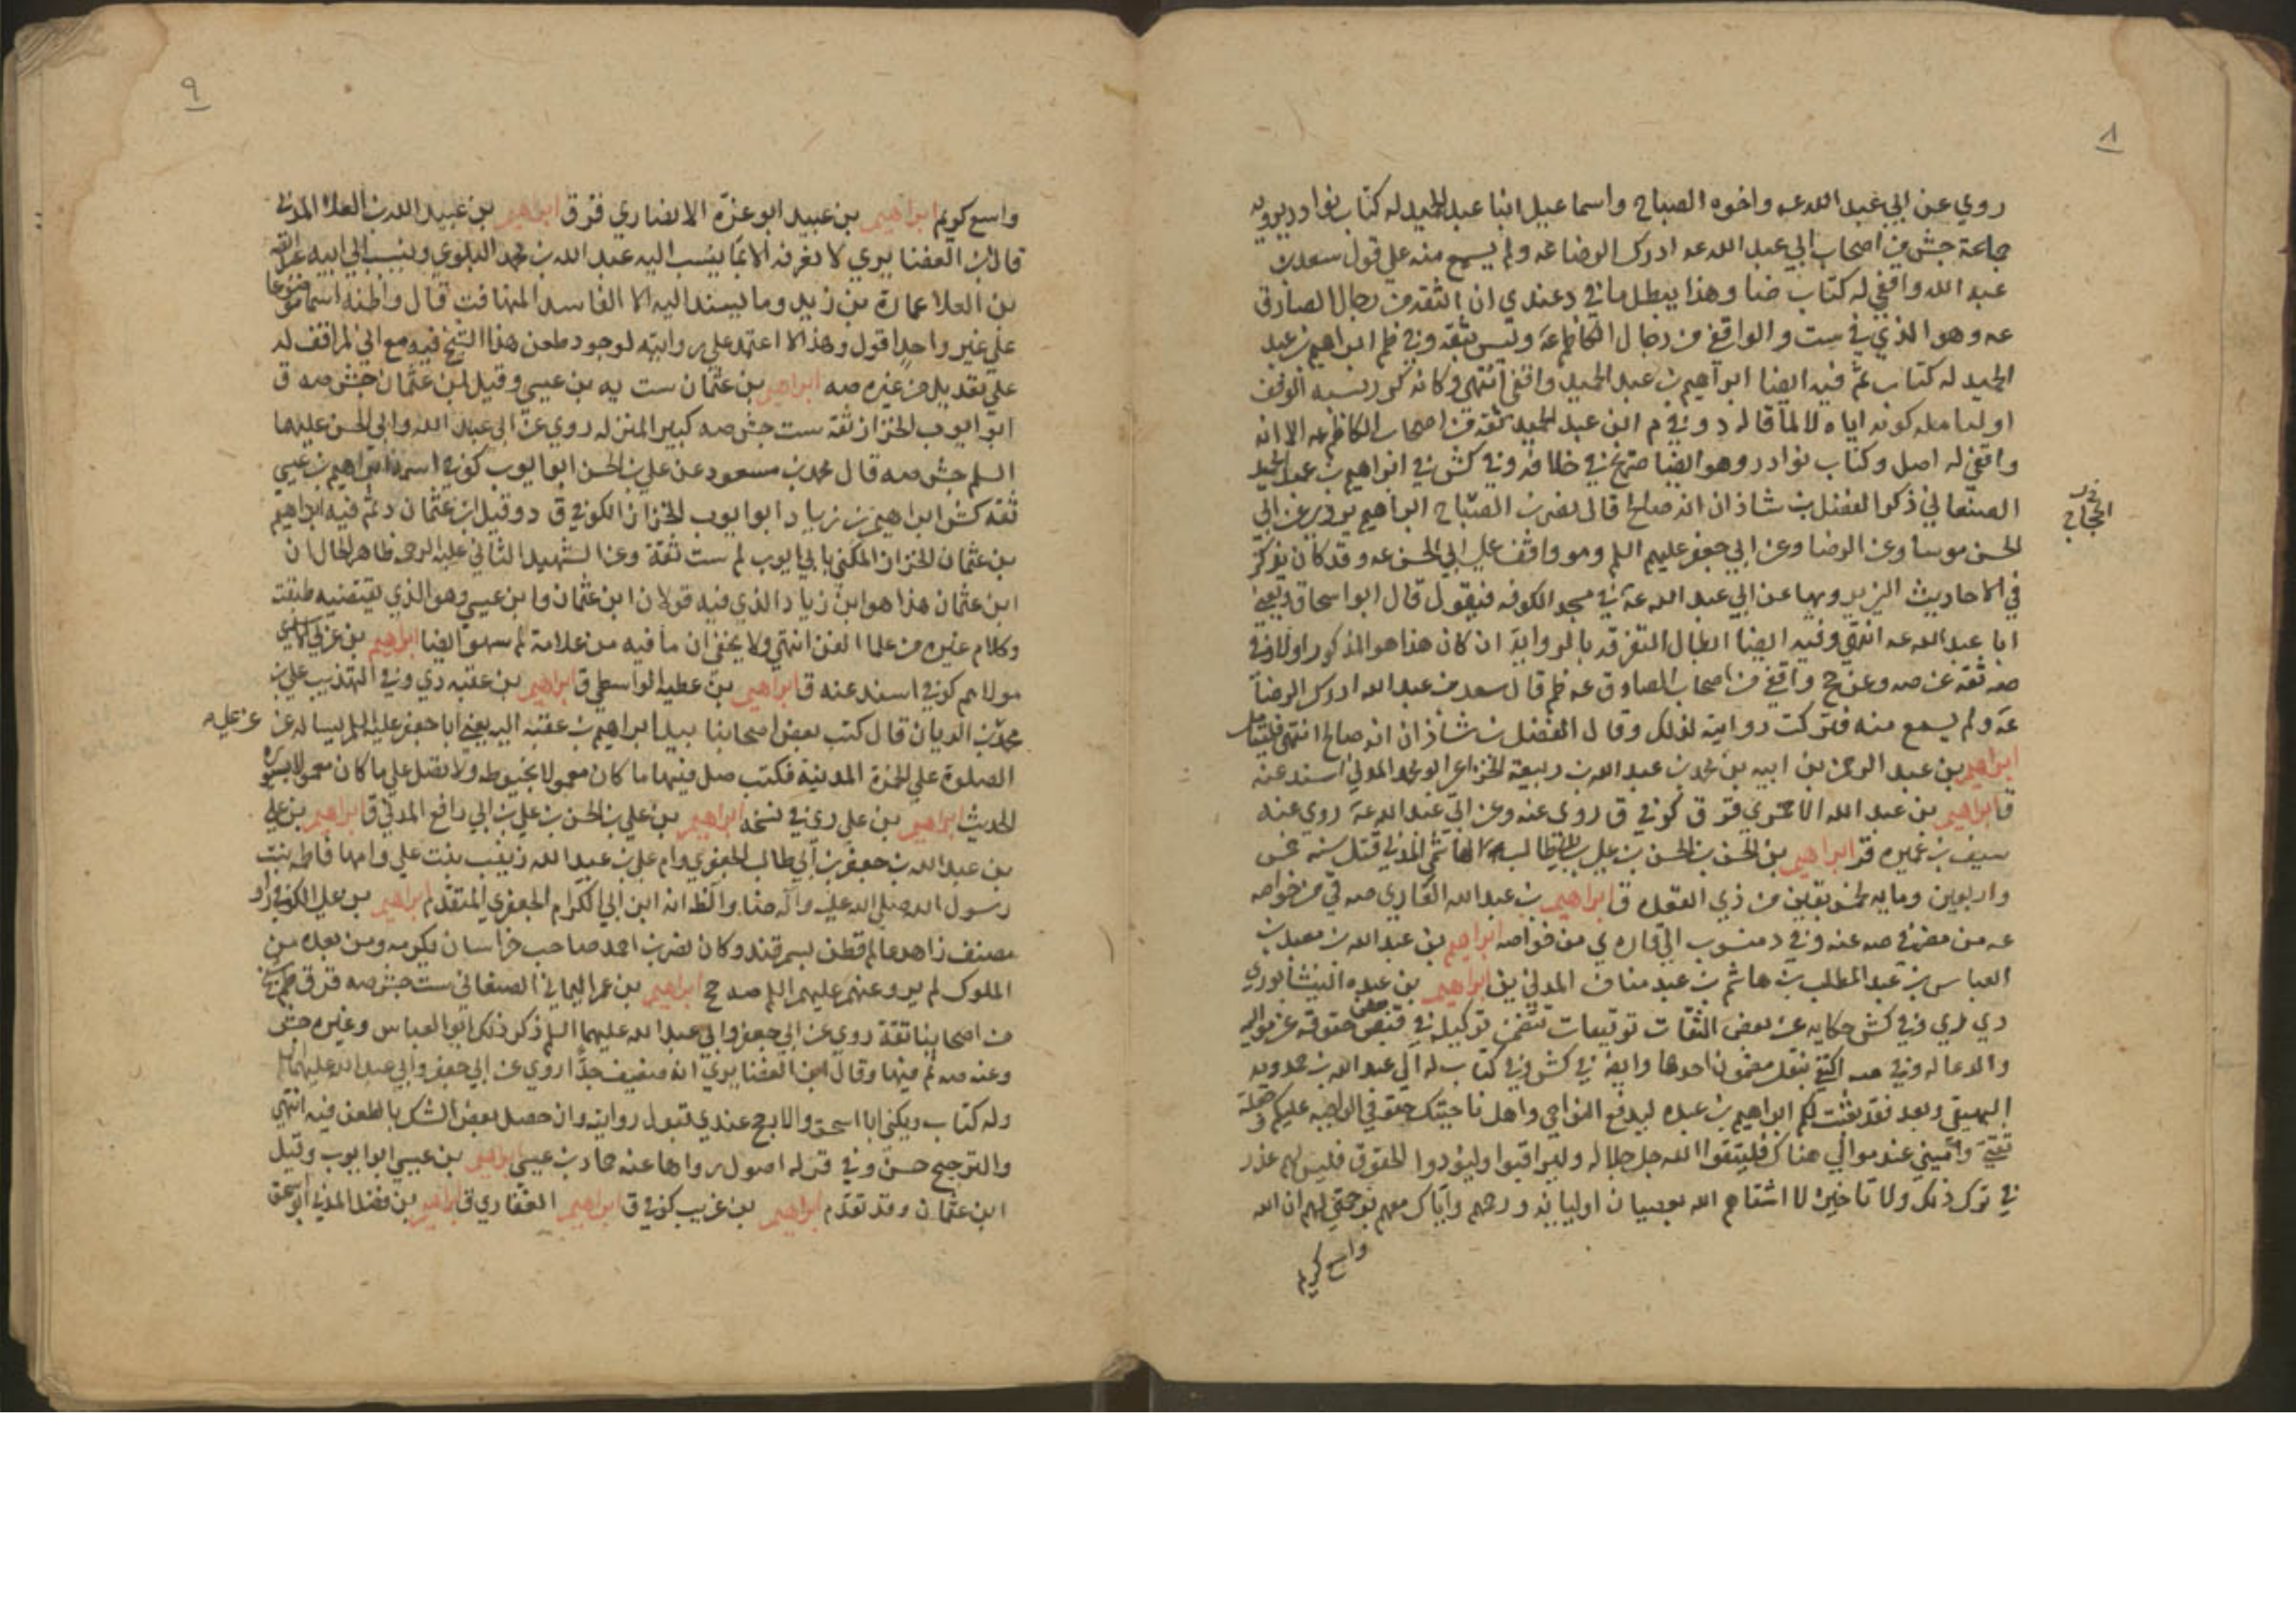 ٨
روي عن ابي عبد الله عه واخوه الصباح واسماعيل ابنا عبد الحميد له كتاب نوادر يرويه
جماعة جش من اصحاب ابي عبد الله عه ادرك الرضا عه ولم يسمع منه على قول سعد بن
عبد الله واقفي له كتاب ضا وهذا يبطل ما في د عندي ان الثقة من رجال الصادق
عه وهو الذي في ست والواقفي من رجال الكاظم عه وليس بثقه وفي ظم ابراهيم بن عبد
الحميد له كتاب ثم فيه ايضا ابراهيم بن عبد الحميد واقفي انتهى وكانه كرر نسبه الوقف
اوليا مله كونه اياه لا لما قاله د وفي م ابن عبد الحميد ثقة من اصحاب الكاظم عه الا انه
واقفي له اصل وكتاب نوادر وهو ايضا صريح في خلافه وفي كش في ابراهيم بن عبد الحميد
الصنعاني ذكر الفضل بن شاذان انه صالح قال نصر بن الصباح ابراهيم يروي عن ابي
الحسن موسى وعن الرضا وعن ابي جعفر عليهم السلم وهو واقف على ابي الحسن عه وقد كان يذكر
في الاحاديث التي يرويها عن ابي عبد الله عه في مسجد الكوفه فيقول قال ابو اسحاق ويعني
ابا عبد الله عه انتهى وفيه ايضا ابطال التفرقه بالرواية ان كان هذا هو المذكور اولا وفي
صه ثقة عن صه وعن ح واقفي من اصحاب الصادق عه ظم قال سعد بن عبد الله ادرك الرضا
عه ولم يسمع منه فتركت روايته لذلك وقال الفضل بن شاذان انه صالح انتهى فليتامل
ابراهيم بن عبد الرحمن بن ابيه بن محمد بن عبد الله بن ربيعة الخزاعي ابو محمد المدني اسند عنه
ق ابراهيم بن عبد الله الاحمري قر ق كوفي ق روى عنه وعن ابي عبد الله عه روي عنه
سيف بن عميره قر ابراهيم بن الحسن بن الحسن بن علي بن ابي طالب الهاشمي المدني قتل سنه خمس
واربعين ومايه لخمس بقين من ذي القعده ق ابراهيم بن عبد الله القاري صه في من خواصه
عه من مضر في صه عنه وفي د منسوب الى قاره ي من خواصه ابراهيم بن عبد الله بن معبد بن
العباس بن عبد المطلب بن هاشم بن عبد مناف المدني ين ابراهيم بن عبده النيشابوري
دي ري وفي كش حكايه عن بعض الثقات توقيعات تتضمن توكيله في قبض حقوقه عن مواليه
والدعا له وفي صه اكتفى بنقل مضمون احدها وايضا في كش وفي كتاب له الى عبد الله بن حمدويه
البيهقي وبعد فقد بعثت لكم ابراهيم بن عبده ليدفع النواحي واهل ناحيتك حقوقي الواجبه عليكم وجعلته
ثقتي واميني عند موالي هناك فليتقوا الله جل جلاله وليراقبوا وليؤدوا الحقوق فليس لهم عذر
في ترك ذلك ولا تاخيره لا اشقاهم الله بعصيان اوليائه ورحمهم واياك معهم برحمتي لهم ان الله
واسع كريم
٩
واسع كريم ابراهيم بن عبيد ابو عزة الانصاري قر ق ابراهيم بن عبيد الله بن العلاء المدني
قال ابن الغضايري لا نعرفه الا بما ينسب اليه عبد الله بن محمد البلوي وينسب الى ابيه عبيد الله
بن العلا عمارة بن زيد وما يسند اليه الا الفاسد المتهافت قال واظنه اسما موضوعا
على غير واحد اقول وهذا لا اعتمد على روايته لوجود طعن هذا الشيخ فيه مع اني لم اقف له
على تعديل من غيره صه ابراهيم بن عثمان ست يه بن عيسى وقيل ابن عثمان جش صه ق
ابو ايوب الخزاز ثقة ست جش صه كبير المنزله روي عن ابي عبد الله وابي الحسن عليهما
السلم جش صه قال محمد بن مسعود عن علي بن الحسن ابو ايوب كوفي اسمه ابراهيم بن عيسى
ثقه كش ابراهيم بن زياد ابو ايوب الخزاز الكوفي ق د وقيل ابن عثمان د ثم فيه ابراهيم
بن عثمان الخزاز المكنى بابي ايوب لم ست ثقة وعن الشهيد الثاني عليه الرحمه ظاهر الحال ان
ابن عثمان هذا هو ابن زياد الذي فيه قولان ابن عثمان وابن عيسى وهو الذي تقتضيه طبقته
وكلام غيره من علما الفن انتهى ولا يخفى ان ما فيه من علامة لم سهو ايضا ابراهيم بن عربي الاسدي
مولاهم كوفي اسند عنه ق ابراهيم بن عطيه الواسطي ق ابراهيم بن عقبه دي وفي التهذيب علي بن
محمد بن الريان قال كتب بعض اصحابنا بيد ابراهيم بن عقبه اليه يعني ابا جعفر عليه السلم يساله عن
الصلوة على الخمرة المدنية فكتب صل فيها ما كان معمولا بخيوطه ولا تصل على ما كان معمولا بسيوره
الحديث ابراهيم بن علي ري في نسخه ابراهيم بن علي بن الحسن بن علي بن ابي رافع المدني ق ابراهيم بن علي
بن عبد الله بن جعفر بن ابي طالب الجعفري وام علي بن عبد الله زينب بنت علي وامها فاطمه بنت
رسول الله صلى الله عليه وآله ضا والظ انه ابن ابي الكرام الجعفري المتقدم ابراهيم بن علي الكوفي راو
مصنف زاهد عالم قطن بسمرقند وكان نصر بن احمد صاحب خراسان يكرمه ومن بعده من
الملوك لم يرو عنهم عليهم السلم صه ح ابراهيم بن عمر اليماني الصنعاني ست جش صه قر ق ظم شيخ
من اصحابنا ثقة روي عن ابي جعفر وابي عبد الله عليهما السلم ذكر ذلك ابو العباس وغيره جش
وعنه صه ثم فيها وقال ابن الغضايري انه ضعيف جدا روي عن ابي جعفر وابي عبد الله عليهما السلم
وله كتاب ويكنى ابا اسحق والارجح عندي قبول روايته وان حصل بعض الشك بالطعن فيه انتهى
والترجيح حسن وفي قر له اصول رواها عنه حماد بن عيسى ابراهيم بن عيسى ابو ايوب وقيل
ابن عثمان وقد تقدم ابراهيم بن غريب كوفي ق ابراهيم الغفاري ق ابراهيم بن فضل المدني ابو اسحق